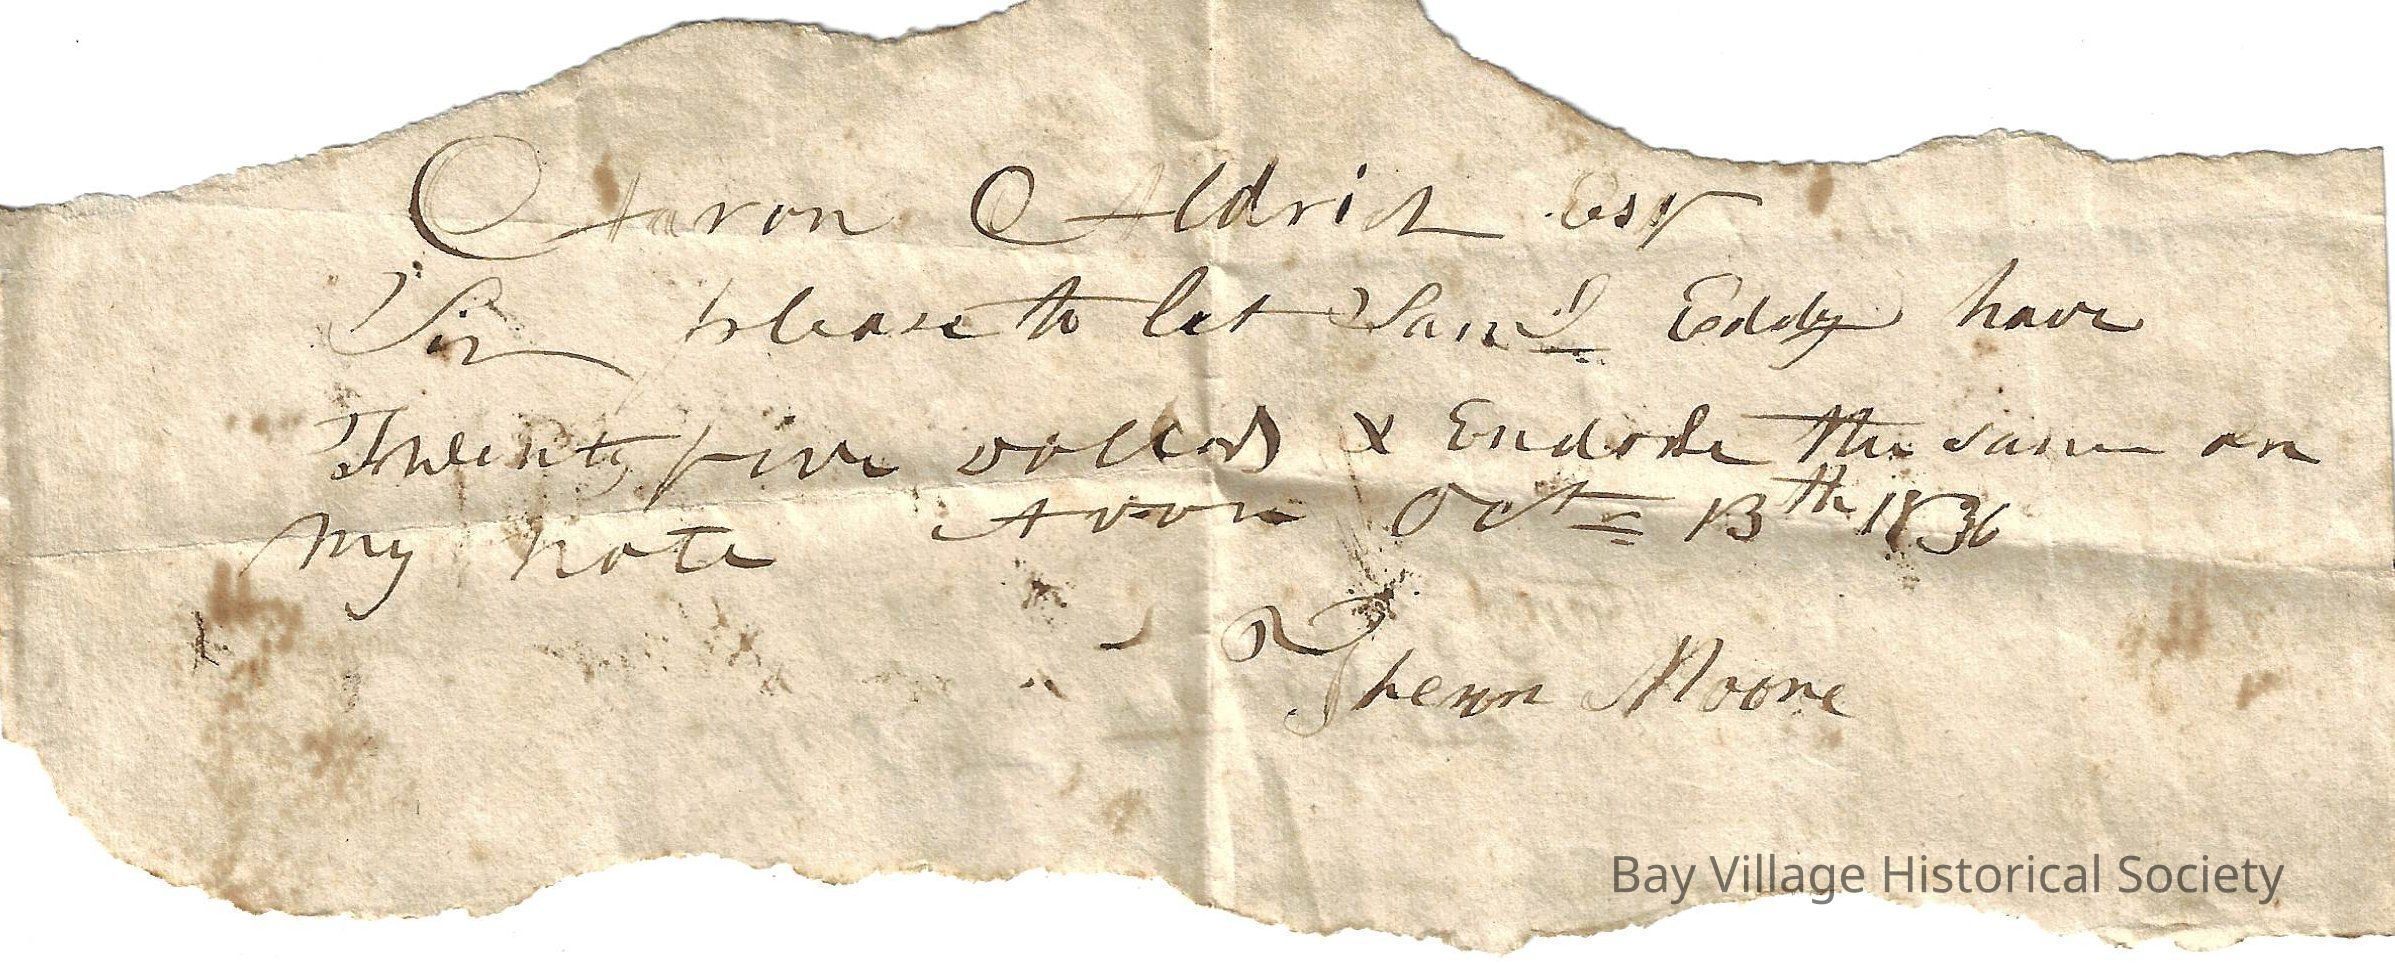 Aaron Aldrich Esqr
Sir please to let Saml Eddy have
Twenty five dollars & Endorse the same on
my note Avon Oct 13th 1836
Moore
Bay Village Historical Society